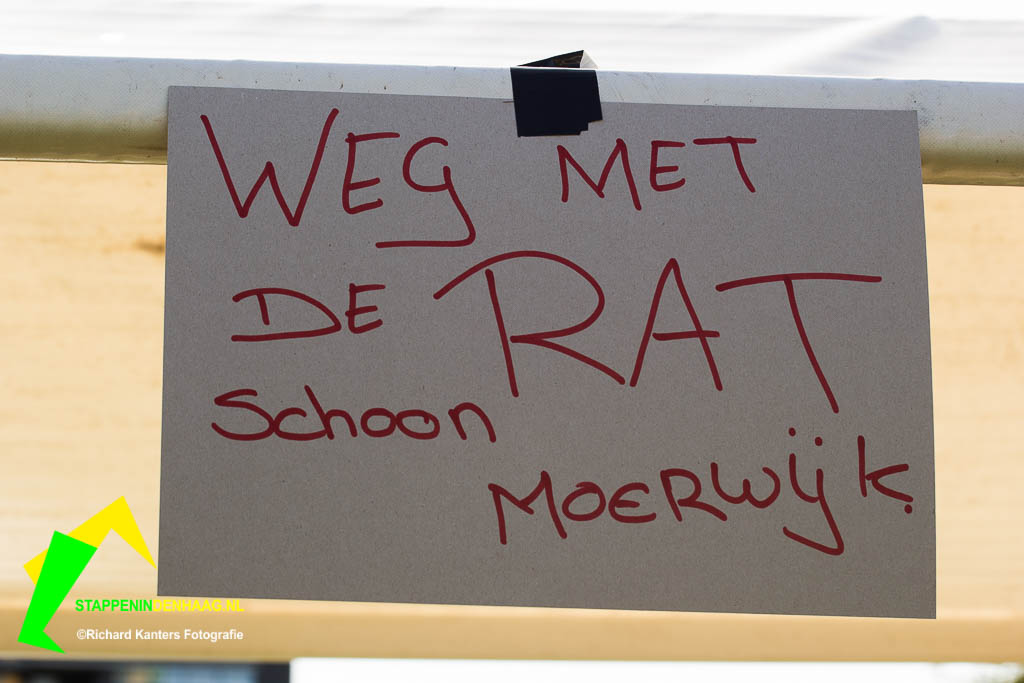 WEG MET
DE RAT
Schoon
MOERWijk.
STAPPENINDENHAAG.NL
©Richard Kanters Fotografie